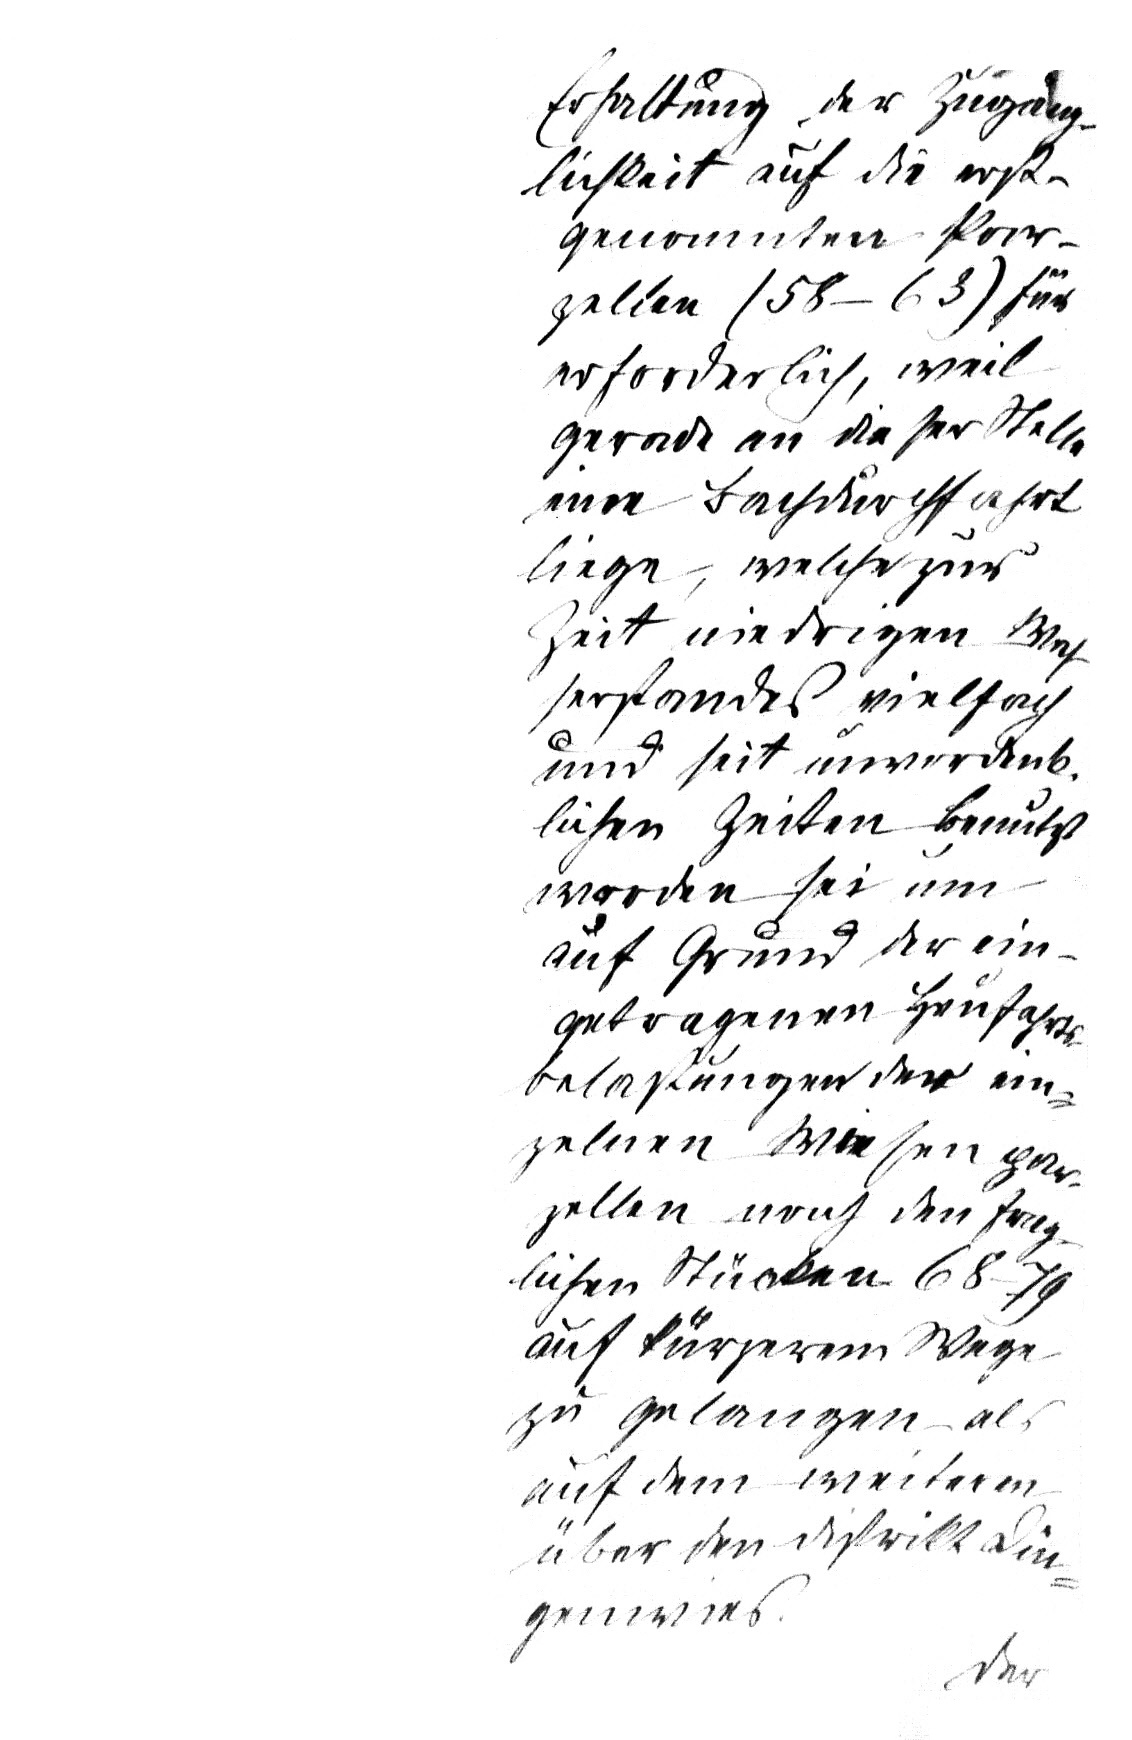 Erhaltung der Zugäng-
lichkeit auf die erst-
genannten Par-
zellen (58-63) für
erforderlich, weil
gerade an dieser Stelle
eine Bachdurchfahrt
liege, welche zur
Zeit niedrigen Was-
serstandes vielfach
und seit unvordenk-
lichen Zeiten benutzt
worden sei um
auf Grund der ein-
getragenen Heufahrts-
belastungen der ein=
zelnen Wiesenpar-
zellen nach den frag-
lichen Stücken 68-79
auf kürzerem Wege
zu gelangen als
auf dem weiteren
über den Distrikt
genwies.
Der